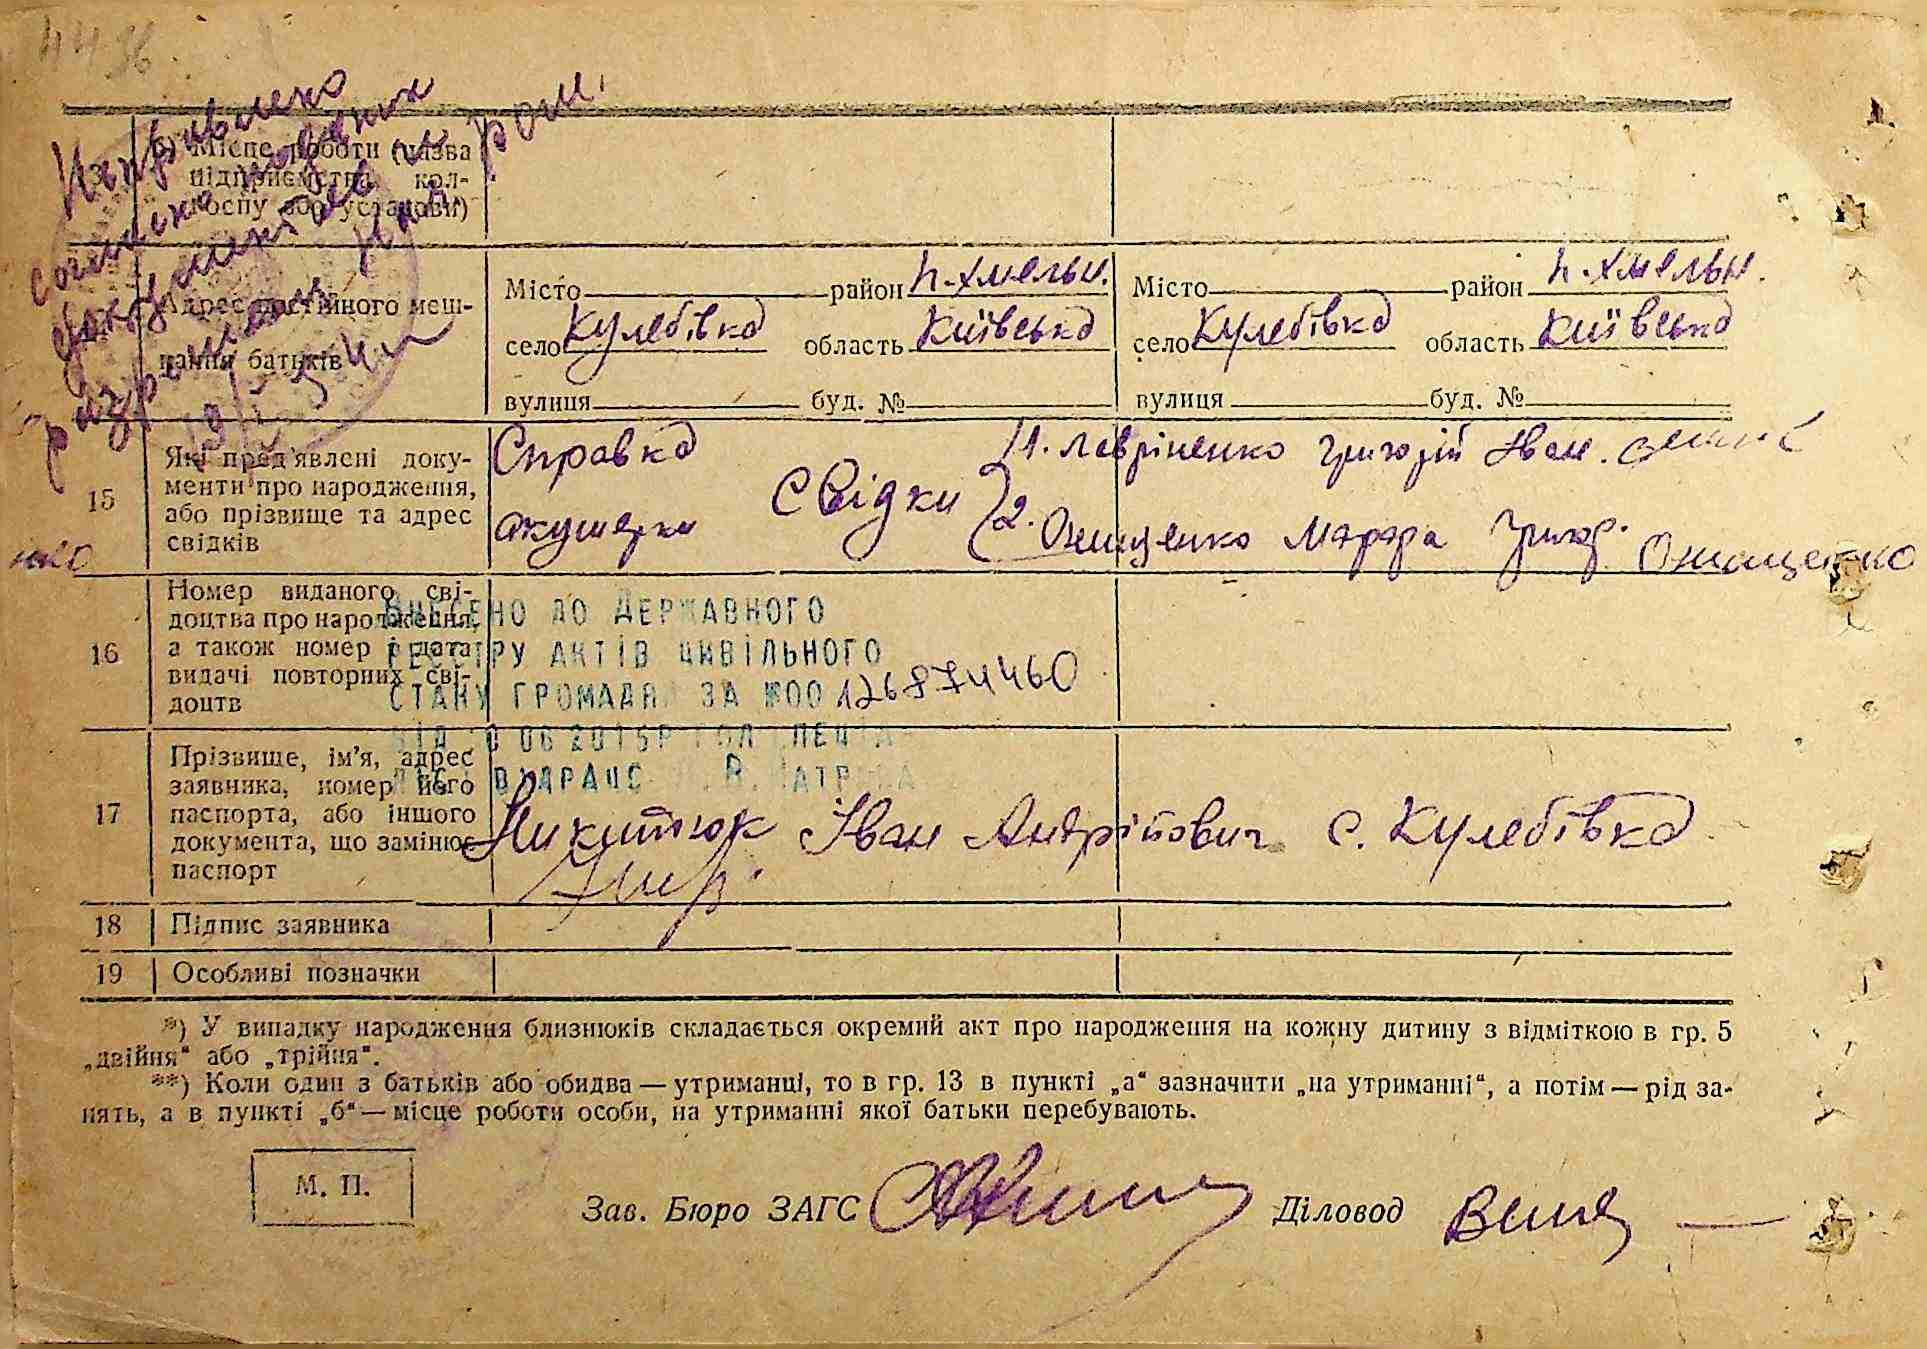 4436
Направлено
согласно поданих
документов и
Нач. РОМ.
б) Місце роботи (назва
підприємства, кол-
госпу або установи)
Адрес постійного меш-
кання батьків
Місто район П.Хмельн. Місто район П.Хмельн.
село Кулебівка область Київська село Кулебівка область Київська
вулиця буд. № вулиця буд. №
15 Які пред'явлені доку-
менти про народження,
або прізвище та адрес
свідків
Справка
акушерки
Свідки
1. Лавріненко Григорій Іван.
2. Онищенко Марфа Григор. Онищенко
16 Номер виданого сві-
доцтва про народження,
а також номер і дата
видачі повторних сві-
доцтв
Внесено до Державного
реєстру актів цивільного
стану громадян за №00126874460
17 Прізвище, ім'я, адрес
заявника, номер його
паспорта, або іншого
документа, що замінює
паспорт
Никитюк Іван Андрійович с. Кулебівка
18 Підпис заявника
19 Особливі позначки
*) У випадку народження близнюків складається окремий акт про народження на кожну дитину з відміткою в гр. 5
„двійня“ або „трійня“.
**) Коли один з батьків або обидва — утриманці, то в гр. 13 в пункті „а“ зазначити „на утриманні“, а потім — рід за-
нять, а в пункті „б“ — місце роботи особи, на утриманні якої батьки перебувають.
М. П.
Зав. Бюро ЗАГС Діловод